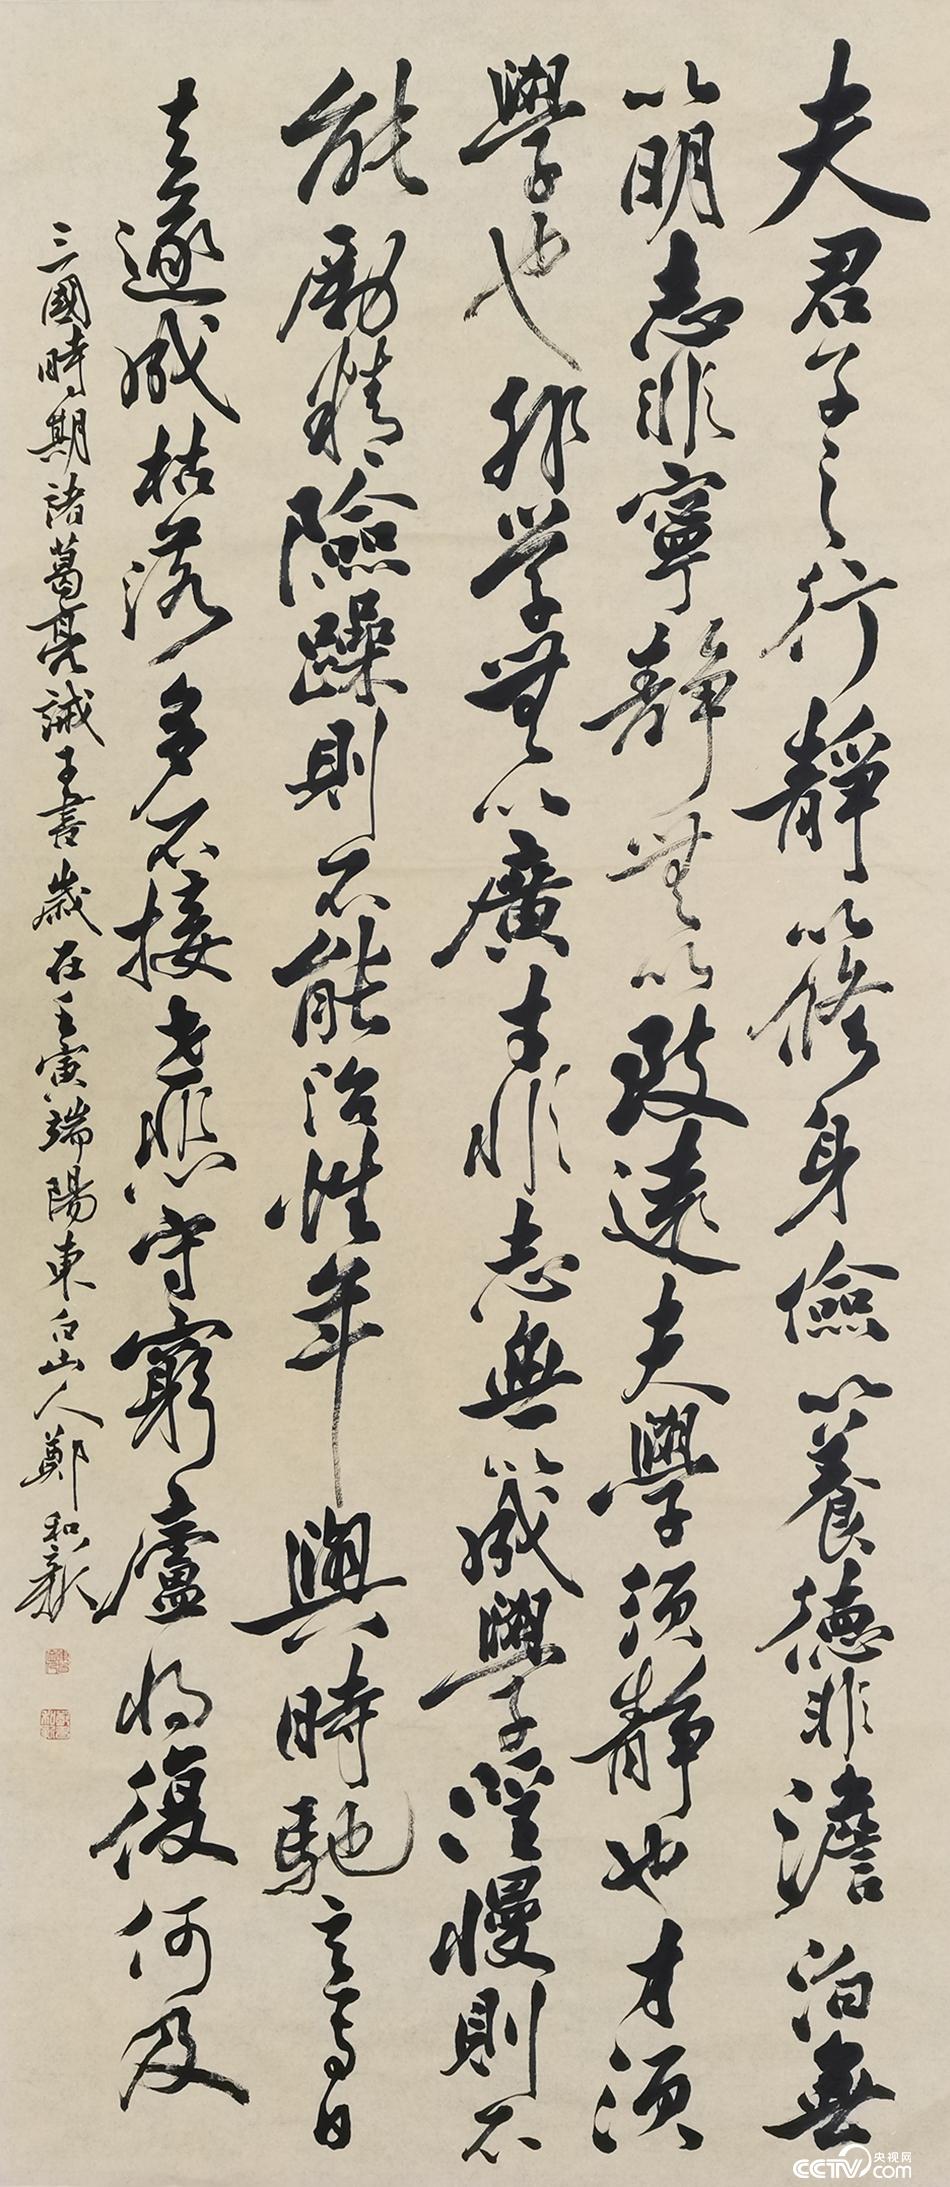 夫君子之行靜以修身儉以養德非澹泊無
以明志非寧靜無以致遠夫學須靜也才須
學也非学無以廣才非志無以成學淫慢則不
能勵精險躁則不能治性年與時馳意与日
去遂成枯落多不接世悲守窮廬將復何及
三國時期諸葛亮誡子書歲在壬寅端陽東白山人鄭和新
CCTV.com 央视网